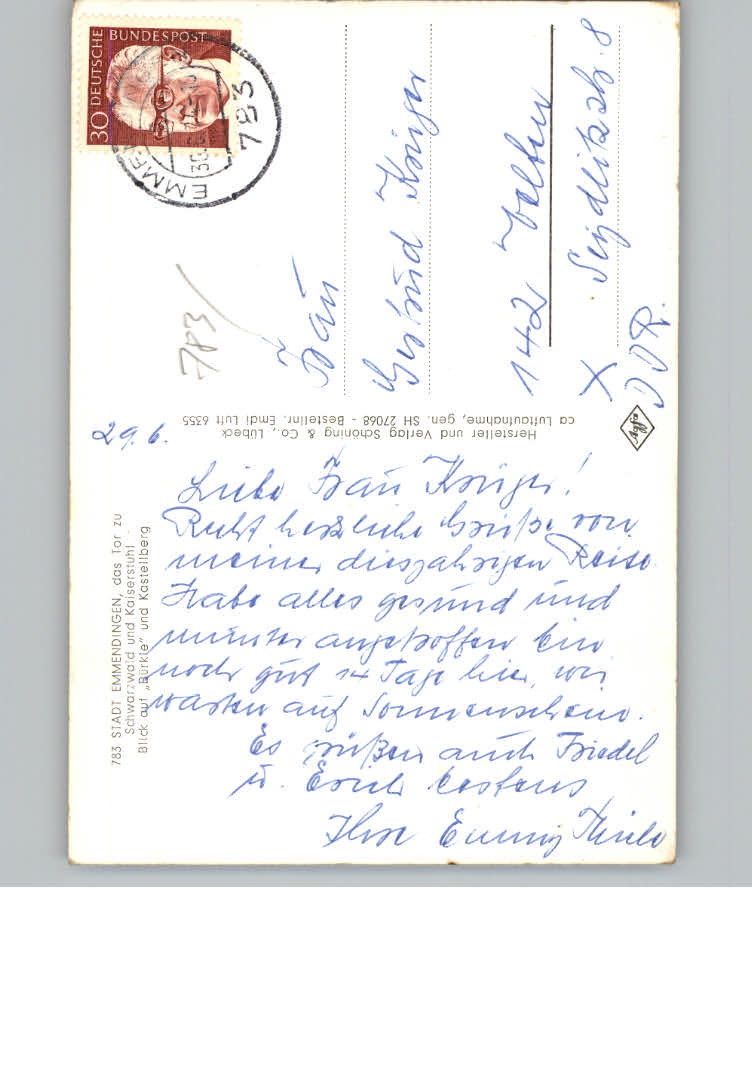 29.6.
Liebe Frau Krüger!
Recht herzliche Grüße von
meiner diesjährigen Reise.
Habe alles gesund und
munter angetroffen bin
noch gut 14 Tage hier, wir
warten auf Sonnenschein.
Es grüßen auch Friedel
u. Erich bestens
Ihre Emmy Thiele
Frau
Gertrud Krüger
142 Velten
X
Seydlitzstr. 8
DDR.
783
30 DEUTSCHE BUNDESPOST
783
783 STADT EMMENDINGEN, das Tor zu
Schwarzwald und Kaiserstuhl -
Blick auf „Bürkle“ und Kastellberg
Hersteller und Verlag Schöning & Co., Lübeck
ca Luftaufnahme, gen. SH 27068 - Bestellnr. Emdi Luft 6355
Agfa